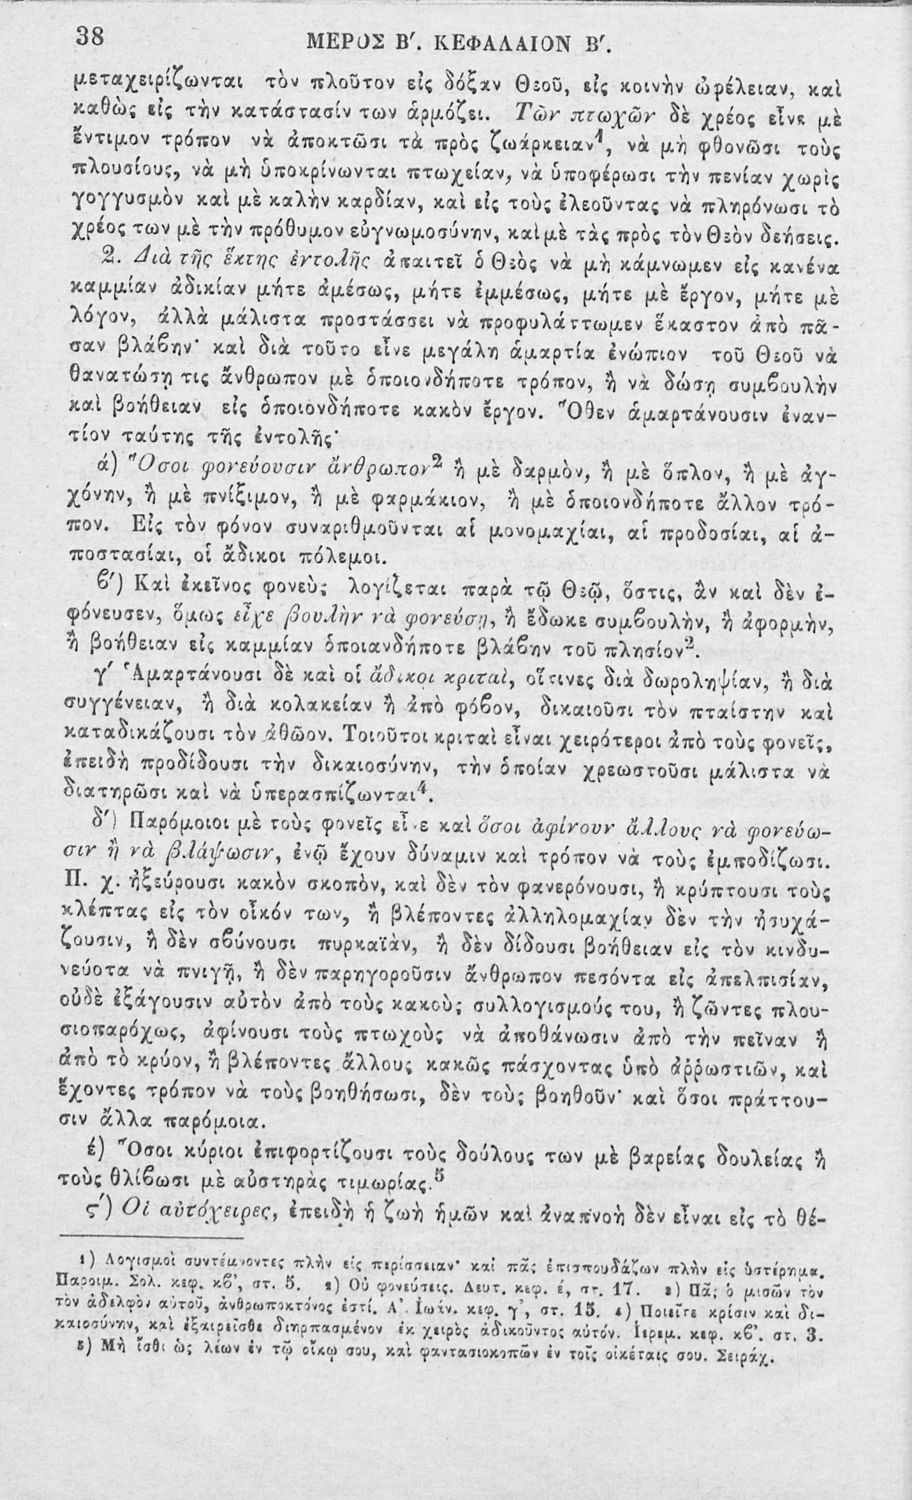 38
ΜΕΡΟΣ Β′. ΚΕΦΑΛΑΙΟΝ Β′.
μεταχειρίζωνται τὸν πλοῦτον εἰς δόξαν Θεοῦ, εἰς κοινὴν ὠφέλειαν, καὶ
καθὼς εἰς τὴν κατάστασίν των ἁρμόζει. Τῶν πτωχῶν δὲ χρέος εἶνε μὲ
ἔντιμον τρόπον νὰ ἀποκτῶσι τὰ πρὸς ζωάρκειαν¹, νὰ μὴ φθονῶσι τοὺς
πλουσίους, νὰ μὴ ὑποκρίνωνται πτωχείαν, νὰ ὑποφέρωσι τὴν πενίαν χωρὶς
γογγυσμὸν καὶ μὲ καλὴν καρδίαν, καὶ εἰς τοὺς ἐλεοῦντας νὰ πληρόνωσι τὸ
χρέος των μὲ τὴν πρόθυμον εὐγνωμοσύνην, καὶ μὲ τὰς πρὸς τὸν Θεὸν δεήσεις.
2. Διὰ τῆς ἕκτης ἐντολῆς ἀπαιτεῖ ὁ Θεὸς νὰ μὴ κάμνωμεν εἰς κανένα
καμμίαν ἀδικίαν μήτε ἀμέσως, μήτε ἐμμέσως, μήτε μὲ ἔργον, μήτε μὲ
λόγον, ἀλλὰ μάλιστα προστάσσει νὰ προφυλάττωμεν ἕκαστον ἀπὸ πᾶ-
σαν βλάβην· καὶ διὰ τοῦτο εἶνε μεγάλη ἁμαρτία ἐνώπιον τοῦ Θεοῦ νὰ
θανατώσῃ τις ἄνθρωπον μὲ ὁποιονδήποτε τρόπον, ἢ νὰ δώσῃ συμβουλὴν
καὶ βοήθειαν εἰς ὁποιονδήποτε κακὸν ἔργον. Ὅθεν ἁμαρτάνουσιν ἐναν-
τίον ταύτης τῆς ἐντολῆς·
ά) Ὅσοι φονεύουσιν ἄνθρωπον² ἢ μὲ δαρμὸν, ἢ μὲ ὅπλον, ἢ μὲ ἀγ-
χόνην, ἢ μὲ πνίξιμον, ἢ μὲ φαρμάκιον, ἢ μὲ ὁποιονδήποτε ἄλλον τρό-
πον. Εἰς τὸν φόνον συναριθμοῦνται αἱ μονομαχίαι, αἱ προδοσίαι, αἱ ἀ-
ποστασίαι, οἱ ἄδικοι πόλεμοι.
β′) Καὶ ἐκεῖνος φονεὺς λογίζεται παρὰ τῷ Θεῷ, ὅστις, ἂν καὶ δὲν ἐ-
φόνευσεν, ὅμως εἶχε βουλὴν νὰ φονεύσῃ, ἢ ἔδωκε συμβουλὴν, ἢ ἀφορμὴν,
ἢ βοήθειαν εἰς καμμίαν ὁποιανδήποτε βλάβην τοῦ πλησίον³.
γ′ Ἁμαρτάνουσι δὲ καὶ οἱ ἄδικοι κριταὶ, οἵτινες διὰ δωροληψίαν, ἢ διὰ
συγγένειαν, ἢ διὰ κολακείαν ἢ ἀπὸ φόβον, δικαιοῦσι τὸν πταίστην καὶ
καταδικάζουσι τὸν ἀθῶον. Τοιοῦτοι κριταὶ εἶναι χειρότεροι ἀπὸ τοὺς φονεῖς,
ἐπειδὴ προδίδουσι τὴν δικαιοσύνην, τὴν ὁποίαν χρεωστοῦσι μάλιστα νὰ
διατηρῶσι καὶ νὰ ὑπερασπίζωνται⁴.
δ′) Παρόμοιοι μὲ τοὺς φονεῖς εἶνε καὶ ὅσοι ἀφίνουν ἄλλους νὰ φονεύω-
σιν ἢ νὰ βλάψωσιν, ἐνῷ ἔχουν δύναμιν καὶ τρόπον νὰ τοὺς ἐμποδίζωσι.
Π. χ. ἠξεύρουσι κακὸν σκοπὸν, καὶ δὲν τὸν φανερόνουσι, ἢ κρύπτουσι τοὺς
κλέπτας εἰς τὸν οἶκόν των, ἢ βλέποντες ἀλληλομαχίαν δὲν τὴν ἡσυχά-
ζουσιν, ἢ δὲν σβύνουσι πυρκαϊὰν, ἢ δὲν δίδουσι βοήθειαν εἰς τὸν κινδυ-
νεύοτα νὰ πνιγῇ, ἢ δὲν παρηγοροῦσιν ἄνθρωπον πεσόντα εἰς ἀπελπισίαν,
οὐδὲ ἐξάγουσιν αὐτὸν ἀπὸ τοὺς κακοὺς συλλογισμούς του, ἢ ζῶντες πλου-
σιοπαρόχως, ἀφίνουσι τοὺς πτωχοὺς νὰ ἀποθάνωσιν ἀπὸ τὴν πεῖναν ἢ
ἀπὸ τὸ κρύον, ἢ βλέποντες ἄλλους κακῶς πάσχοντας ὑπὸ ἀῤῥωστιῶν, καὶ
ἔχοντες τρόπον νὰ τοὺς βοηθήσωσι, δὲν τοὺς βοηθοῦν· καὶ ὅσοι πράττου-
σιν ἄλλα παρόμοια.
έ) Ὅσοι κύριοι ἐπιφορτίζουσι τοὺς δούλους των μὲ βαρείας δουλείας ἢ
τοὺς θλίβωσι μὲ αὐστηρὰς τιμωρίας.⁵
ς′) Οἱ αὐτόχειρες, ἐπειδὴ ἡ ζωὴ ἡμῶν καὶ ἀναπνοὴ δὲν εἶναι εἰς τὸ θέ-
1) Λογισμοὶ συντέμνοντες πλὴν εἰς περίσσειαν· καὶ πᾶς ἐπισπουδάζων πλὴν εἰς ὑστέρημα.
Παροιμ. Σολ. κεφ. κβ′, στ. 5. 2) Οὐ φονεύσεις. Δευτ. κεφ. έ, στ. 17. 3) Πᾶς ὁ μισῶν τὸν
τὸν ἀδελφὸν αὐτοῦ, ἀνθρωποκτόνος ἐστί. Α′. Ἰωάν. κεφ. γ′, στ. 15. 4) Ποιεῖτε κρίσιν καὶ δι-
καιοσύνην, καὶ ἐξαιρεῖσθε διηρπασμένον ἐκ χειρὸς ἀδικοῦντος αὐτόν. Ἱερεμ. κεφ. κβ′. στ. 3.
5) Μὴ ἴσθι ὡς λέων ἐν τῷ οἴκῳ σου, καὶ φαντασιοκοπῶν ἐν τοῖς οἰκέταις σου. Σειράχ.